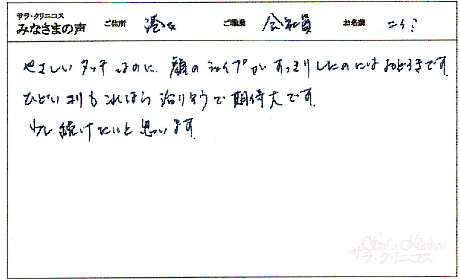 サラ・クリニコス
みなさまの声 ご住所 港区 ご職業 会社員 お名前
やさしいタッチなのに、顔のラインがすっきりしたのにはおどろきです。
ひどいコリもこれなら治りそうで期待大です。
続けたいと思います
Sala Klinikos
サラ・クリニコス